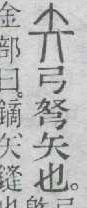 弓弩矢也。
金部曰。鏑矢鏠也